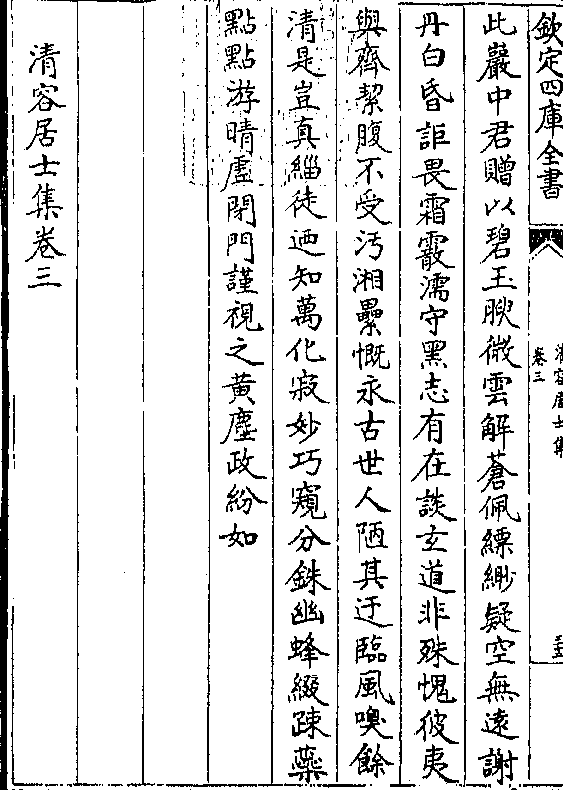 欽定四庫全書
清容居士集
卷三
此巖中君贈以碧玉腴微雲解蒼佩縹緲疑空無遠謝
丹白昏詎畏霜霰濡守黑志有在談玄道非殊愧彼夷
與齊絜腹不受汚湘纍慨永古世人陋其迂臨風嗅餘
清是豈真緇徒迺知萬化寂妙巧窺分銖幽蜂綴踈蘂
點點游晴虛閉門謹視之黃塵政紛如
清容居士集卷三